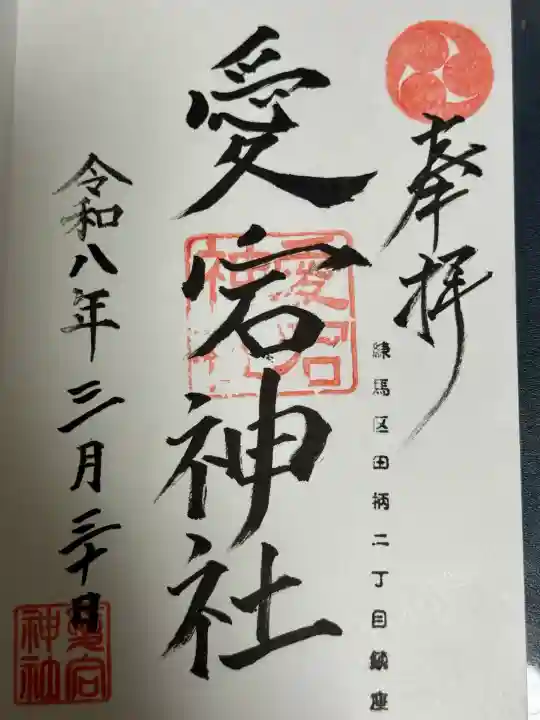 奉拝
練馬区田柄二丁目鎮座
愛宕神社
愛宕神社
令和八年三月三十日
愛宕神社